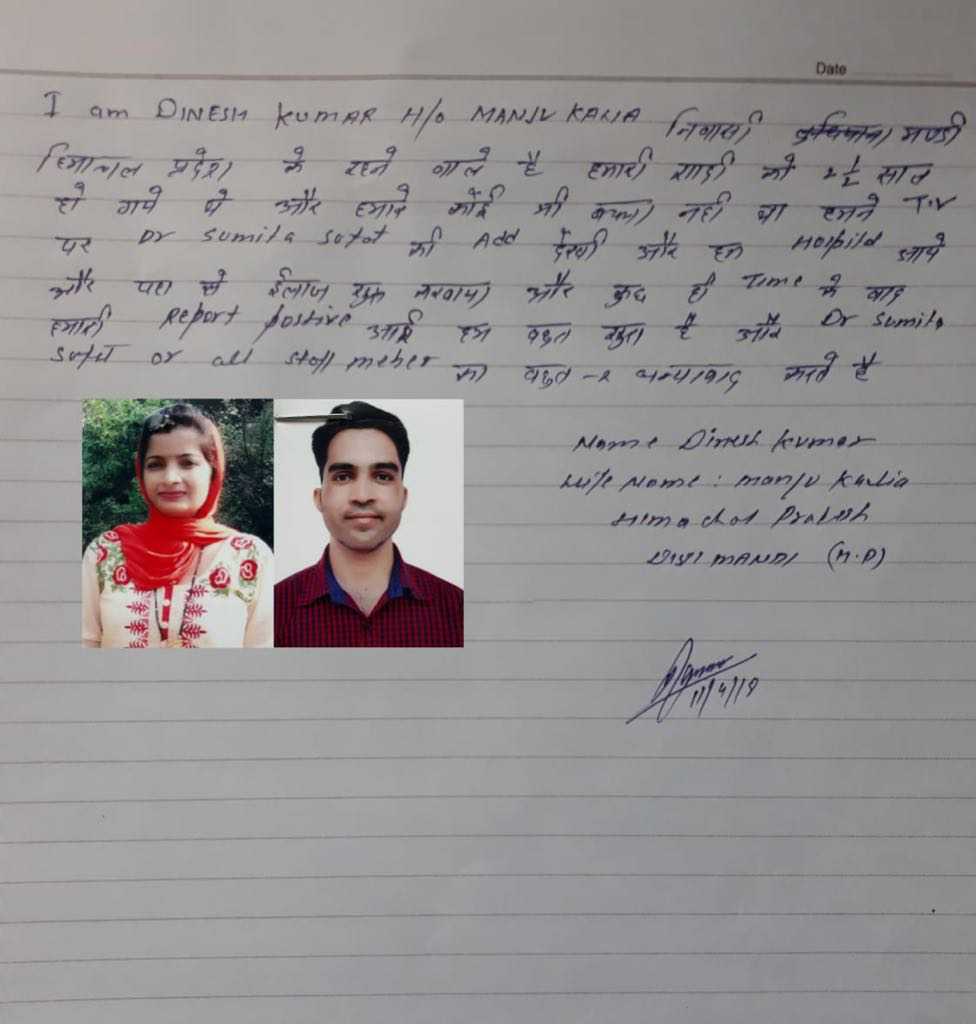 Date
I am DINESH KUMAR H/o MANJU KALIA निवासी लुधियाना मण्डी
हिमाचल प्रदेश के रहने वाले है हमारी शादी को 2 1/2 साल
हो गये थे और हमारे कोई भी बच्चा नही था हमने T.V
पर Dr Sumita Sofat की Add देखी और हम Hospital आये
और यहा से ईलाज शुरू करवाया और कुछ ही Time के बाद
हमारी Report postive आई हम बहुत खुश है और Dr Sumita
Sofat or all staff meber का बहुत -2 धन्यावाद करते है
Name Dinesh Kumar
Wife Name : Manju Kalia
Himachal Pradesh
MANDI (H.P)
11/4/19